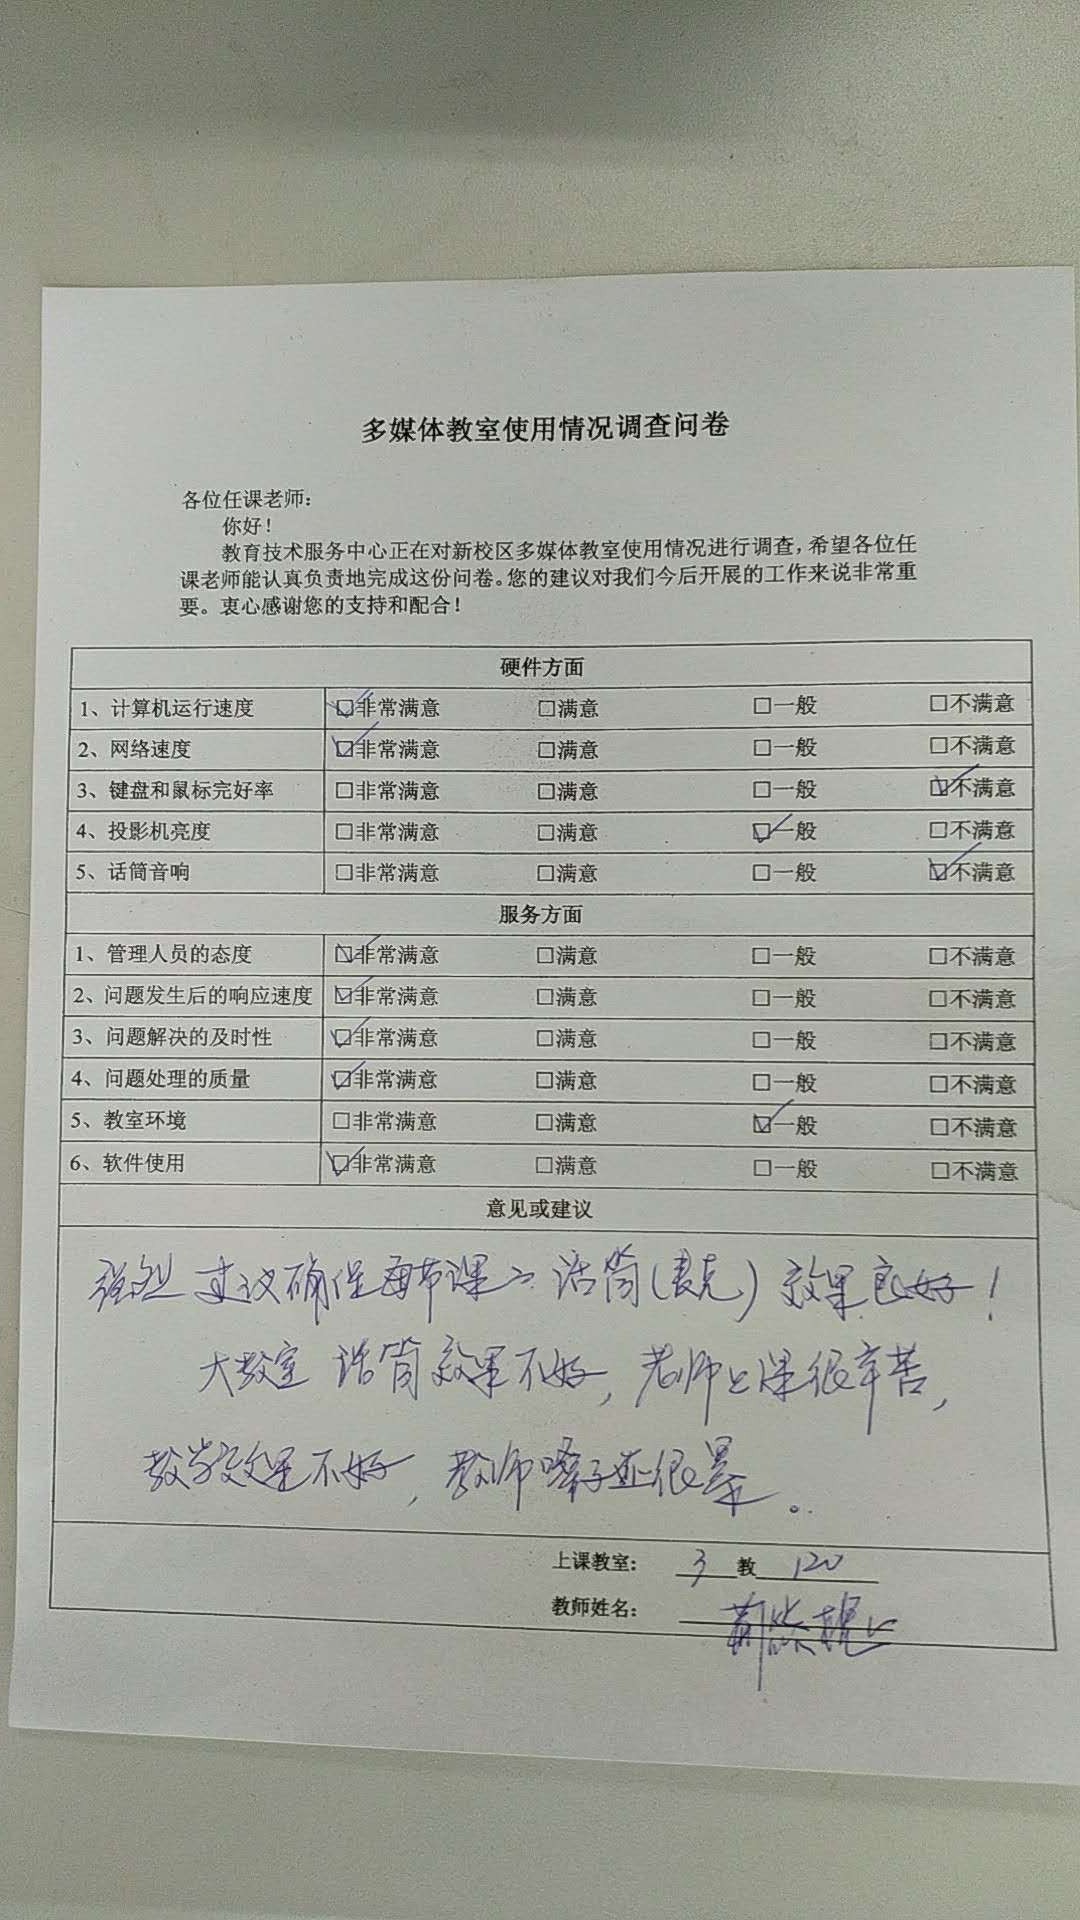 多媒体教室使用情况调查问卷
各位任课老师：
你好！
教育技术服务中心正在对新校区多媒体教室使用情况进行调查，希望各位任
课老师能认真负责地完成这份问卷。您的建议对我们今后开展的工作来说非常重
要。衷心感谢您的支持和配合！
硬件方面
1、计算机运行速度 ☑非常满意 □满意 □一般 □不满意
2、网络速度 ☑非常满意 □满意 □一般 □不满意
3、键盘和鼠标完好率 □非常满意 □满意 □一般 ☑不满意
4、投影机亮度 □非常满意 □满意 ☑一般 □不满意
5、话筒音响 □非常满意 □满意 □一般 ☑不满意
服务方面
1、管理人员的态度 ☑非常满意 □满意 □一般 □不满意
2、问题发生后的响应速度 ☑非常满意 □满意 □一般 □不满意
3、问题解决的及时性 ☑非常满意 □满意 □一般 □不满意
4、问题处理的质量 ☑非常满意 □满意 □一般 □不满意
5、教室环境 □非常满意 □满意 ☑一般 □不满意
6、软件使用 ☑非常满意 □满意 □一般 □不满意
意见或建议
强烈建议确保每节课之话筒（麦克）效果良好！
大教室话筒效果不好，老师上课很辛苦，
教学效果不好，教师嗓子也很累。
上课教室： 3 教 120
教师姓名：